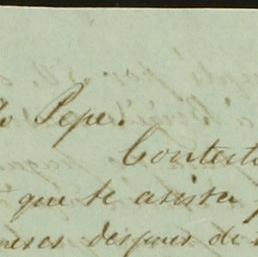 Pepe.
Contest
que te asista
meses despues de